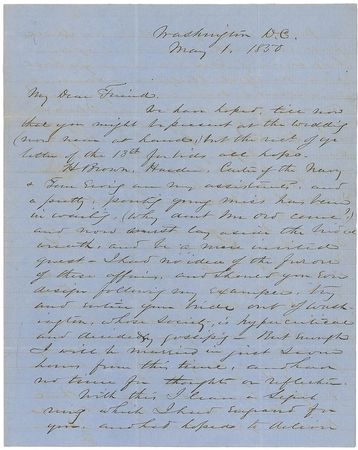 Washington D.C.
May 1. 1850
My Dear Friend.
We have hoped, till now
that you might be present at the wedding
(now near at hand,) but the rect of yr
letter of the 13th forbids all hope.
H Brown, Hardee, Carter of the Navy
& Tom Ewing are my assistants, and
a pretty, young miss has been
in waiting, (Why dont Mr Ord come?)
and now must lay aside the bridal
wreath, and be a mere invited
guest – I had no idea of the furore
of these affairs, and should you Ever
design following my example, try
and entice your bride out of Wash-
ington, whose Society is hypercritical
and decidedly gossipy – But enough
I will be married in just Seven
hours from this time, and have
no time for thought or reflection.
With this I leave a Seal
ring which I had Engraved for
you, and had hoped to deliver